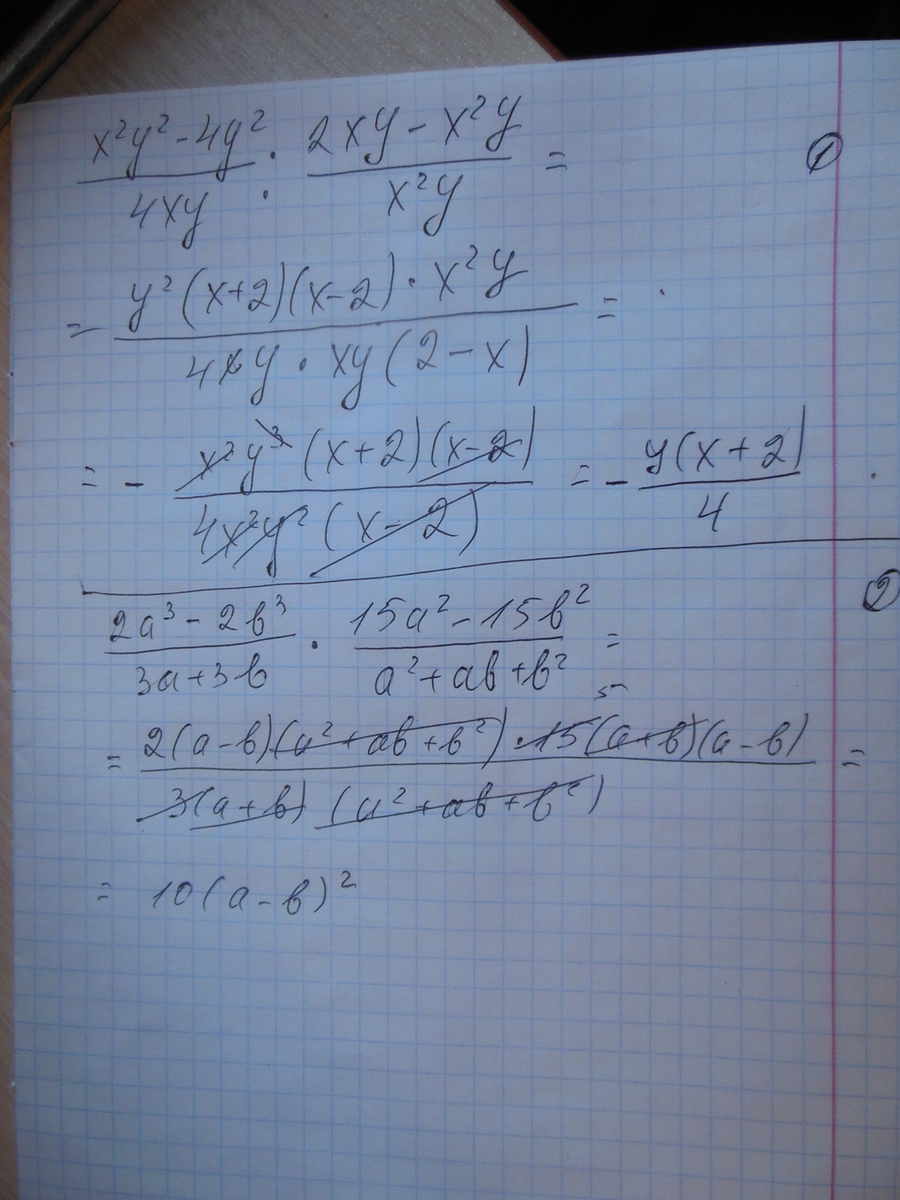 ①
(x²y² - 4y²)/(4xy) : (2xy - x²y)/(x²y) =
= (y²(x+2)(x-2) · x²y)/(4xy · xy(2-x)) =
= - (x²y³(x+2)(x-2))/(4x²y²(x-2)) = - (y(x+2))/4
②
(2a³ - 2b³)/(3a+3b) · (15a² - 15b²)/(a²+ab+b²) =
5
= (2(a-b)(a²+ab+b²) · 15(a+b)(a-b))/(3(a+b)(a²+ab+b²)) =
= 10(a-b)²